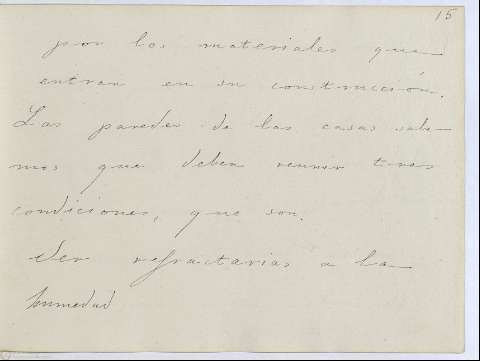 15
por los materiales que
entran en su construcción.
Las paredes de las casas sabe-
mos que deben reunir tres
condiciones, que son.
Ser refractarias a la
humedad